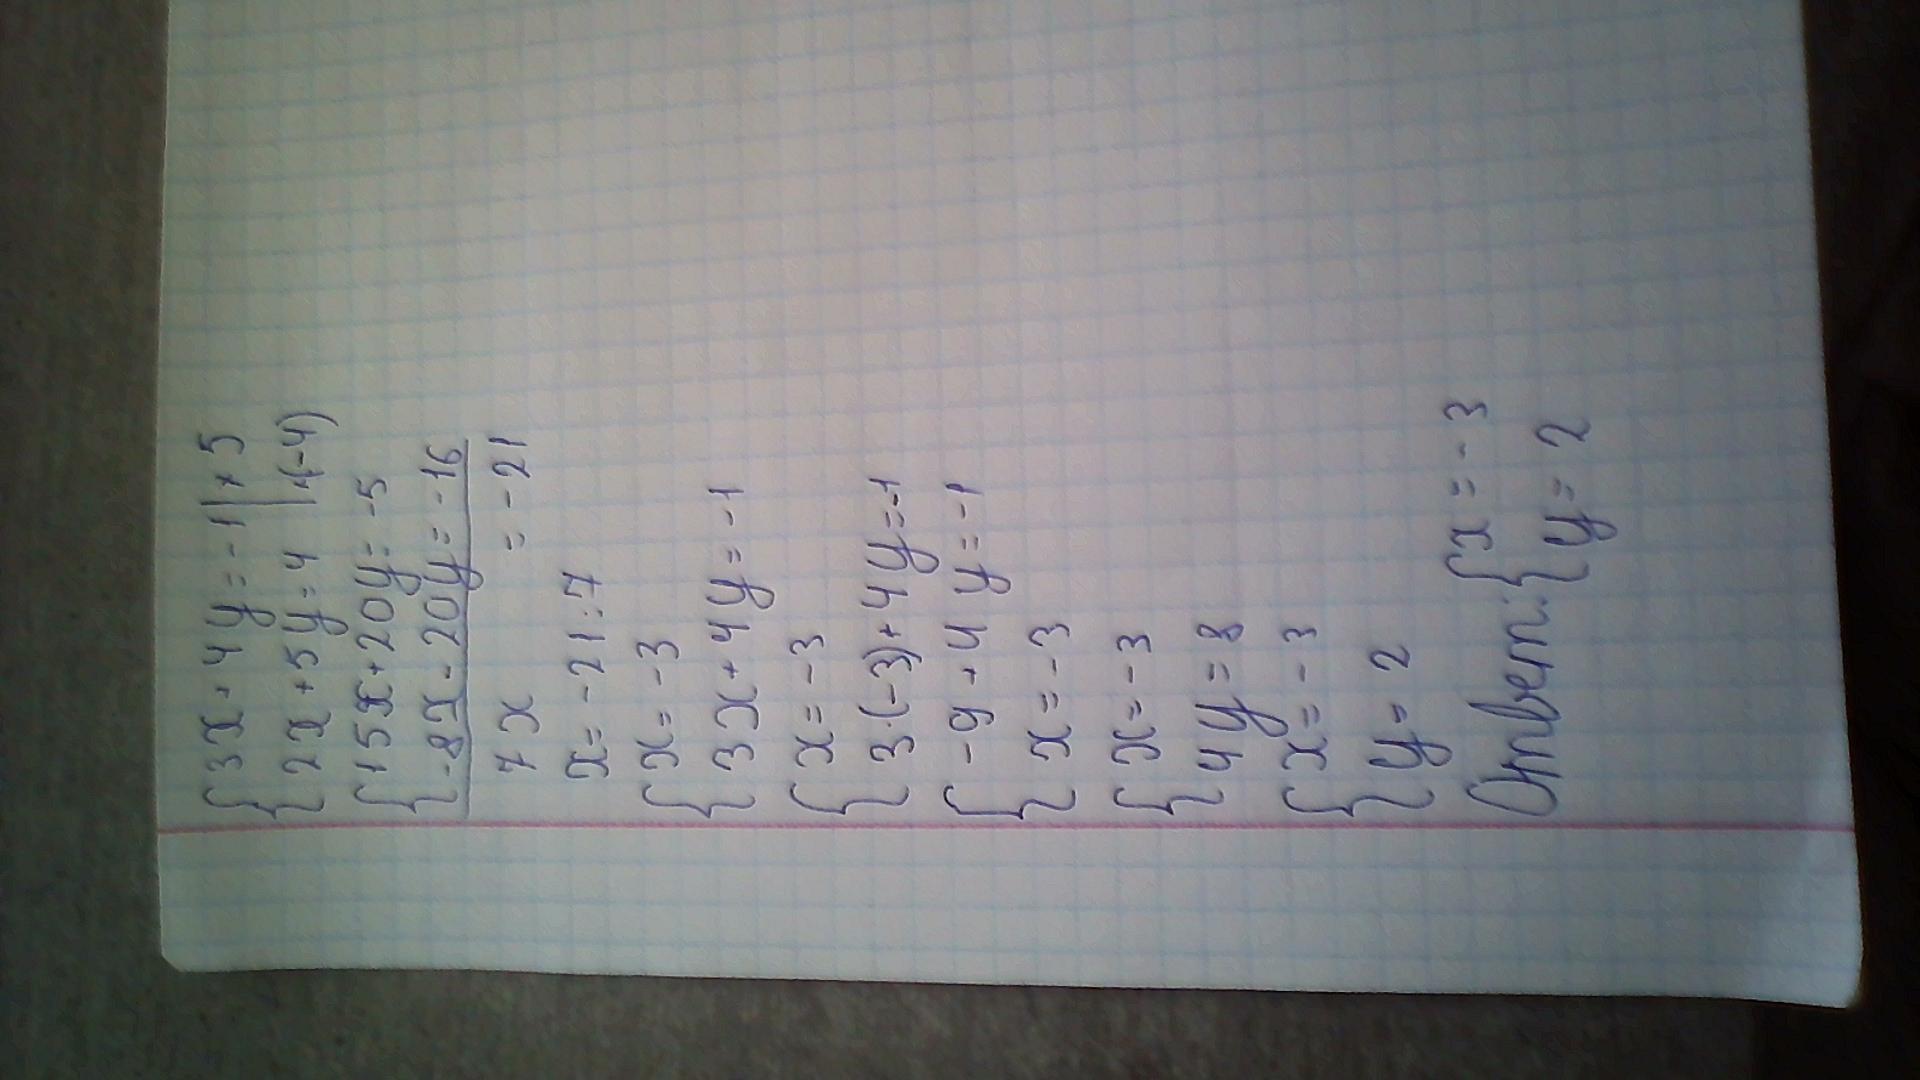 {3x+4y=-1|×5
{2x+5y=4 |×(-4)
{15x+20y=-5
{-8x-20y=-16
7x = -21
x=-21:7
{x=-3
{3x+4y=-1
{x=-3
{3·(-3)+4y=-1
{-9+4y=-1
{x=-3
{x=-3
{4y=8
{x=-3
{y=2
Ответ: {x=-3
{y=2